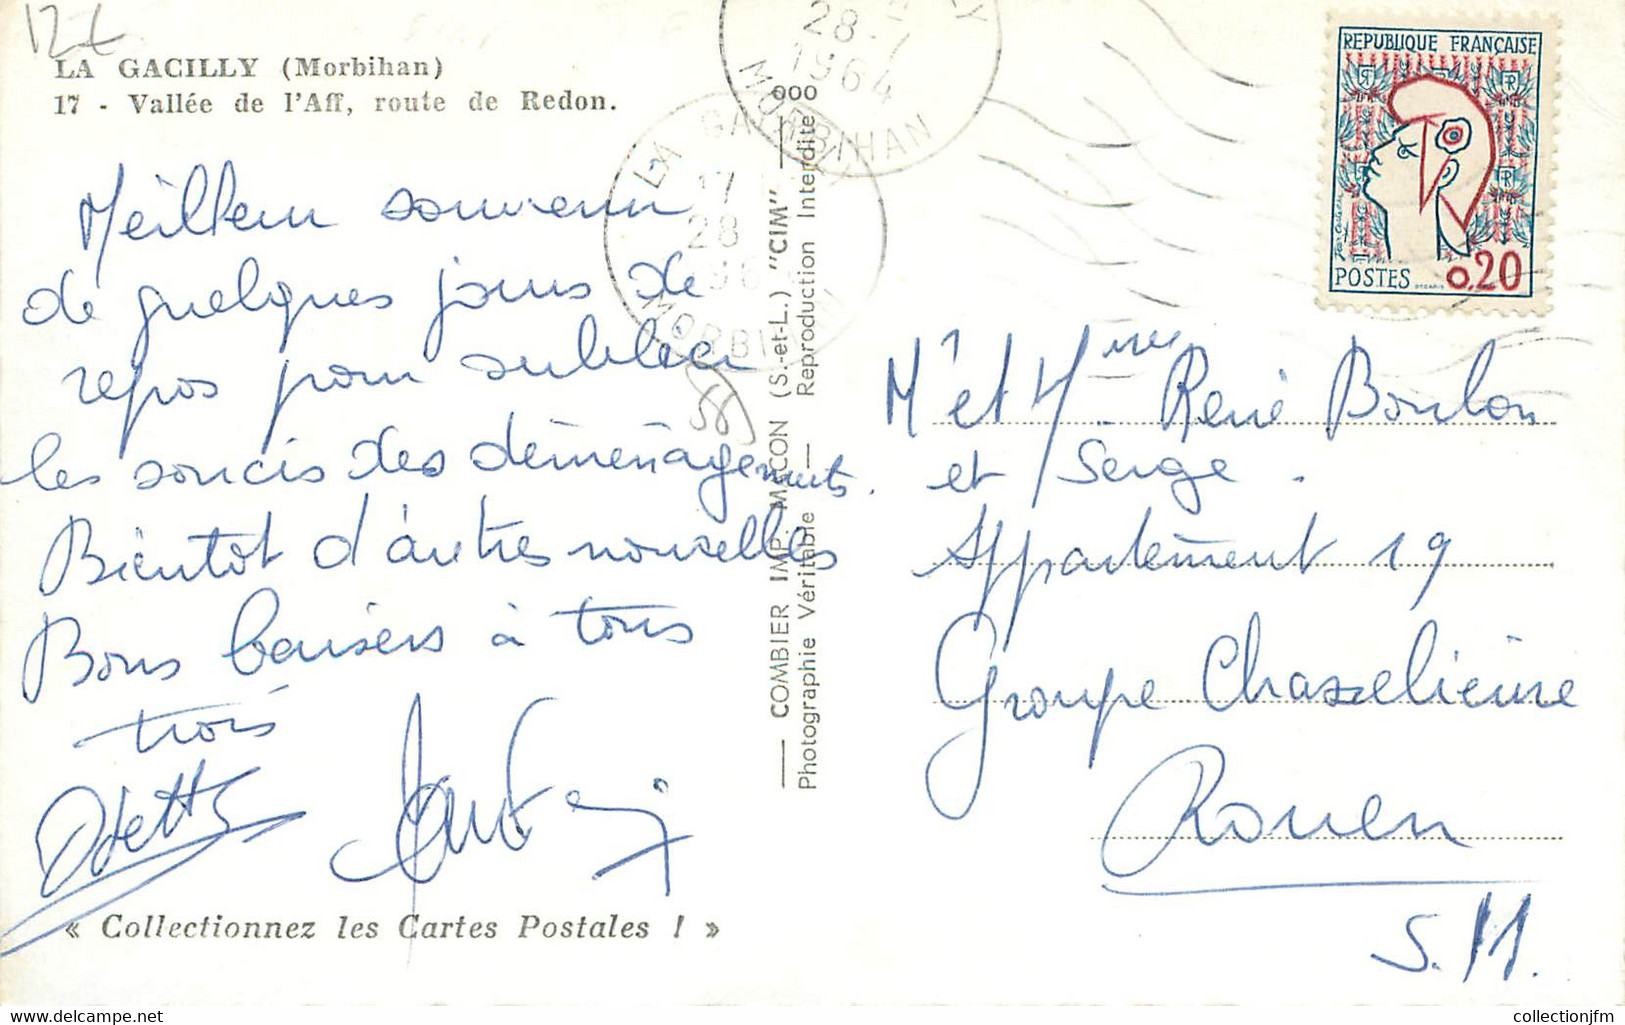 LA GACILLY (Morbihan)
17 - Vallée de l'Aff, route de Redon.
Meilleur souvenir
de quelques jours de
repos pour oublier
les soucis des déménagements.
Bientot d'autres nouvelles
Bons baisers à tous
trois
Odette
« Collectionnez les Cartes Postales ! »
LA GACILLY
17
28
196
MORBIHAN
28-7
1964
MORBIHAN
COMBIER IMP. MACON (S.-et-L.) "CIM"
Photographie Véritable — Reproduction Interdite
000
REPUBLIQUE FRANÇAISE
POSTES 0,20
Mr et Mme René Boulon
et Serge.
Appartement 19
Groupe Chasselièvre
Rouen
S. M.
collectionjfm